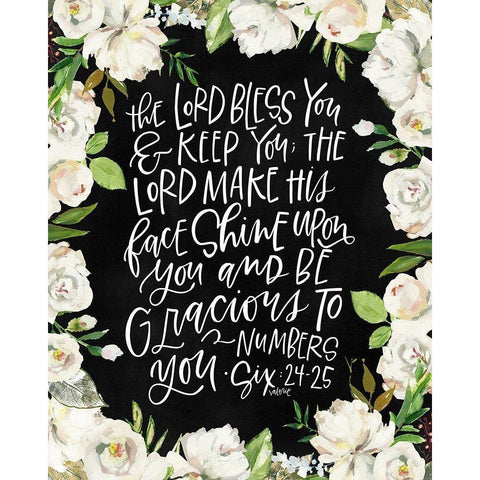 the LORD BLESS YOU
& KEEP YOU; THE
LORD MAKE HIS
face Shine UPON
you and BE
Gracious TO
you. ~ NUMBERS
Six: 24-25
valerie